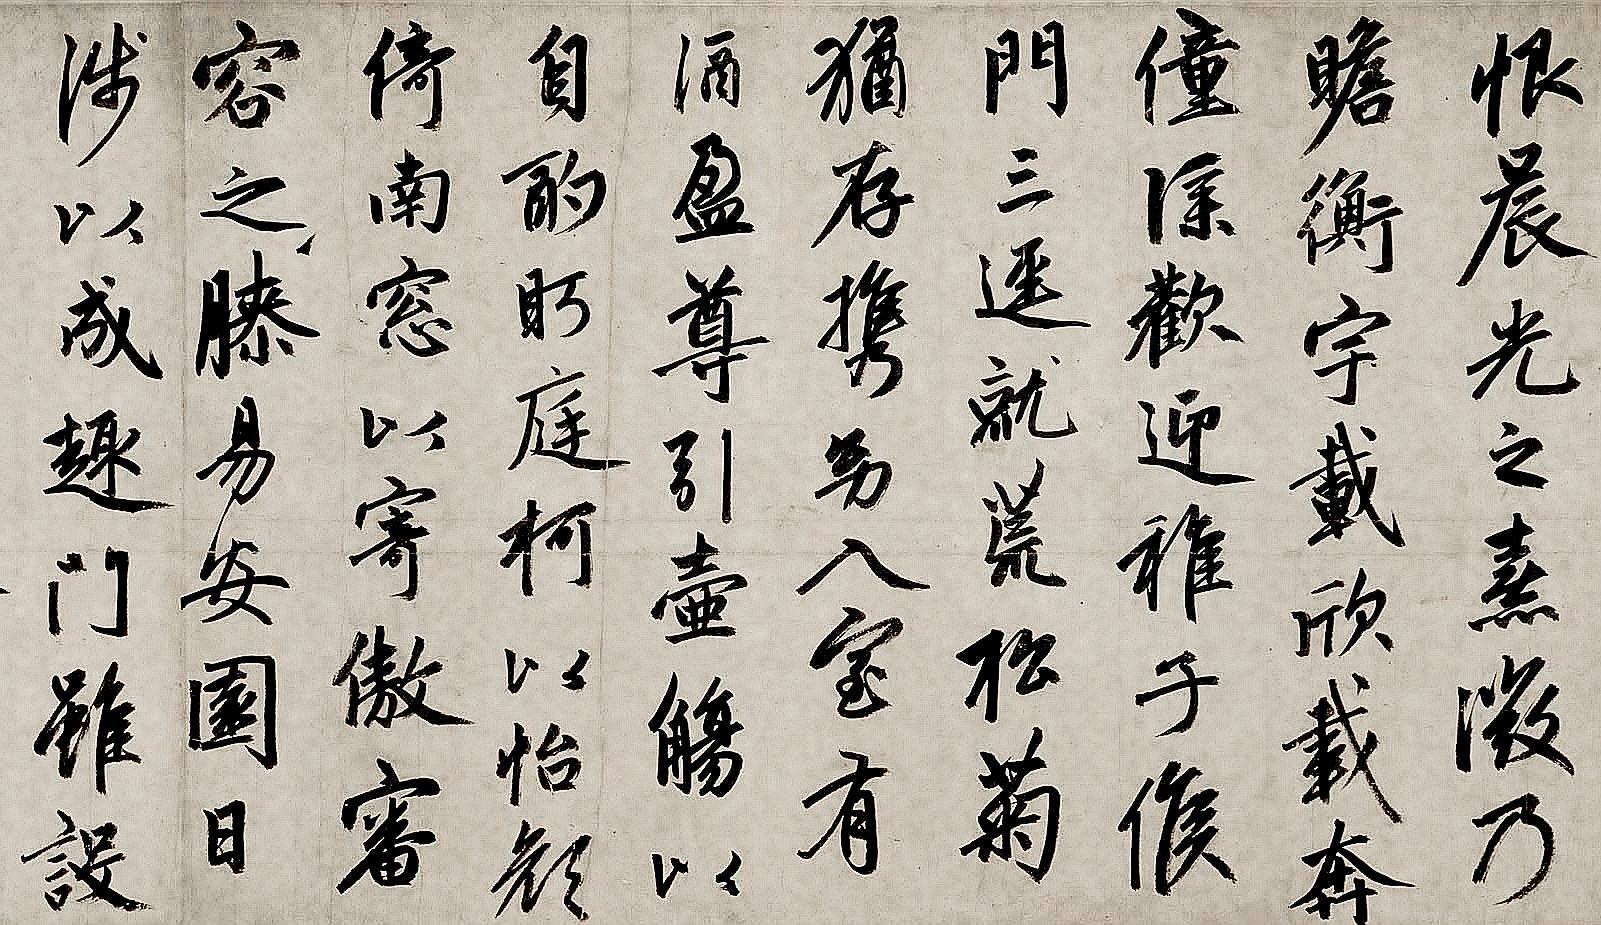 恨晨光之熹微乃
瞻衡宇載欣載奔
僮僕歡迎稚子候
門三逕就荒松菊
猶存携幼入室有
酒盈尊引壺觴以
自酌眄庭柯以怡顔
倚南窓以寄傲審
容之膝易安園日
涉以成趣門雖設